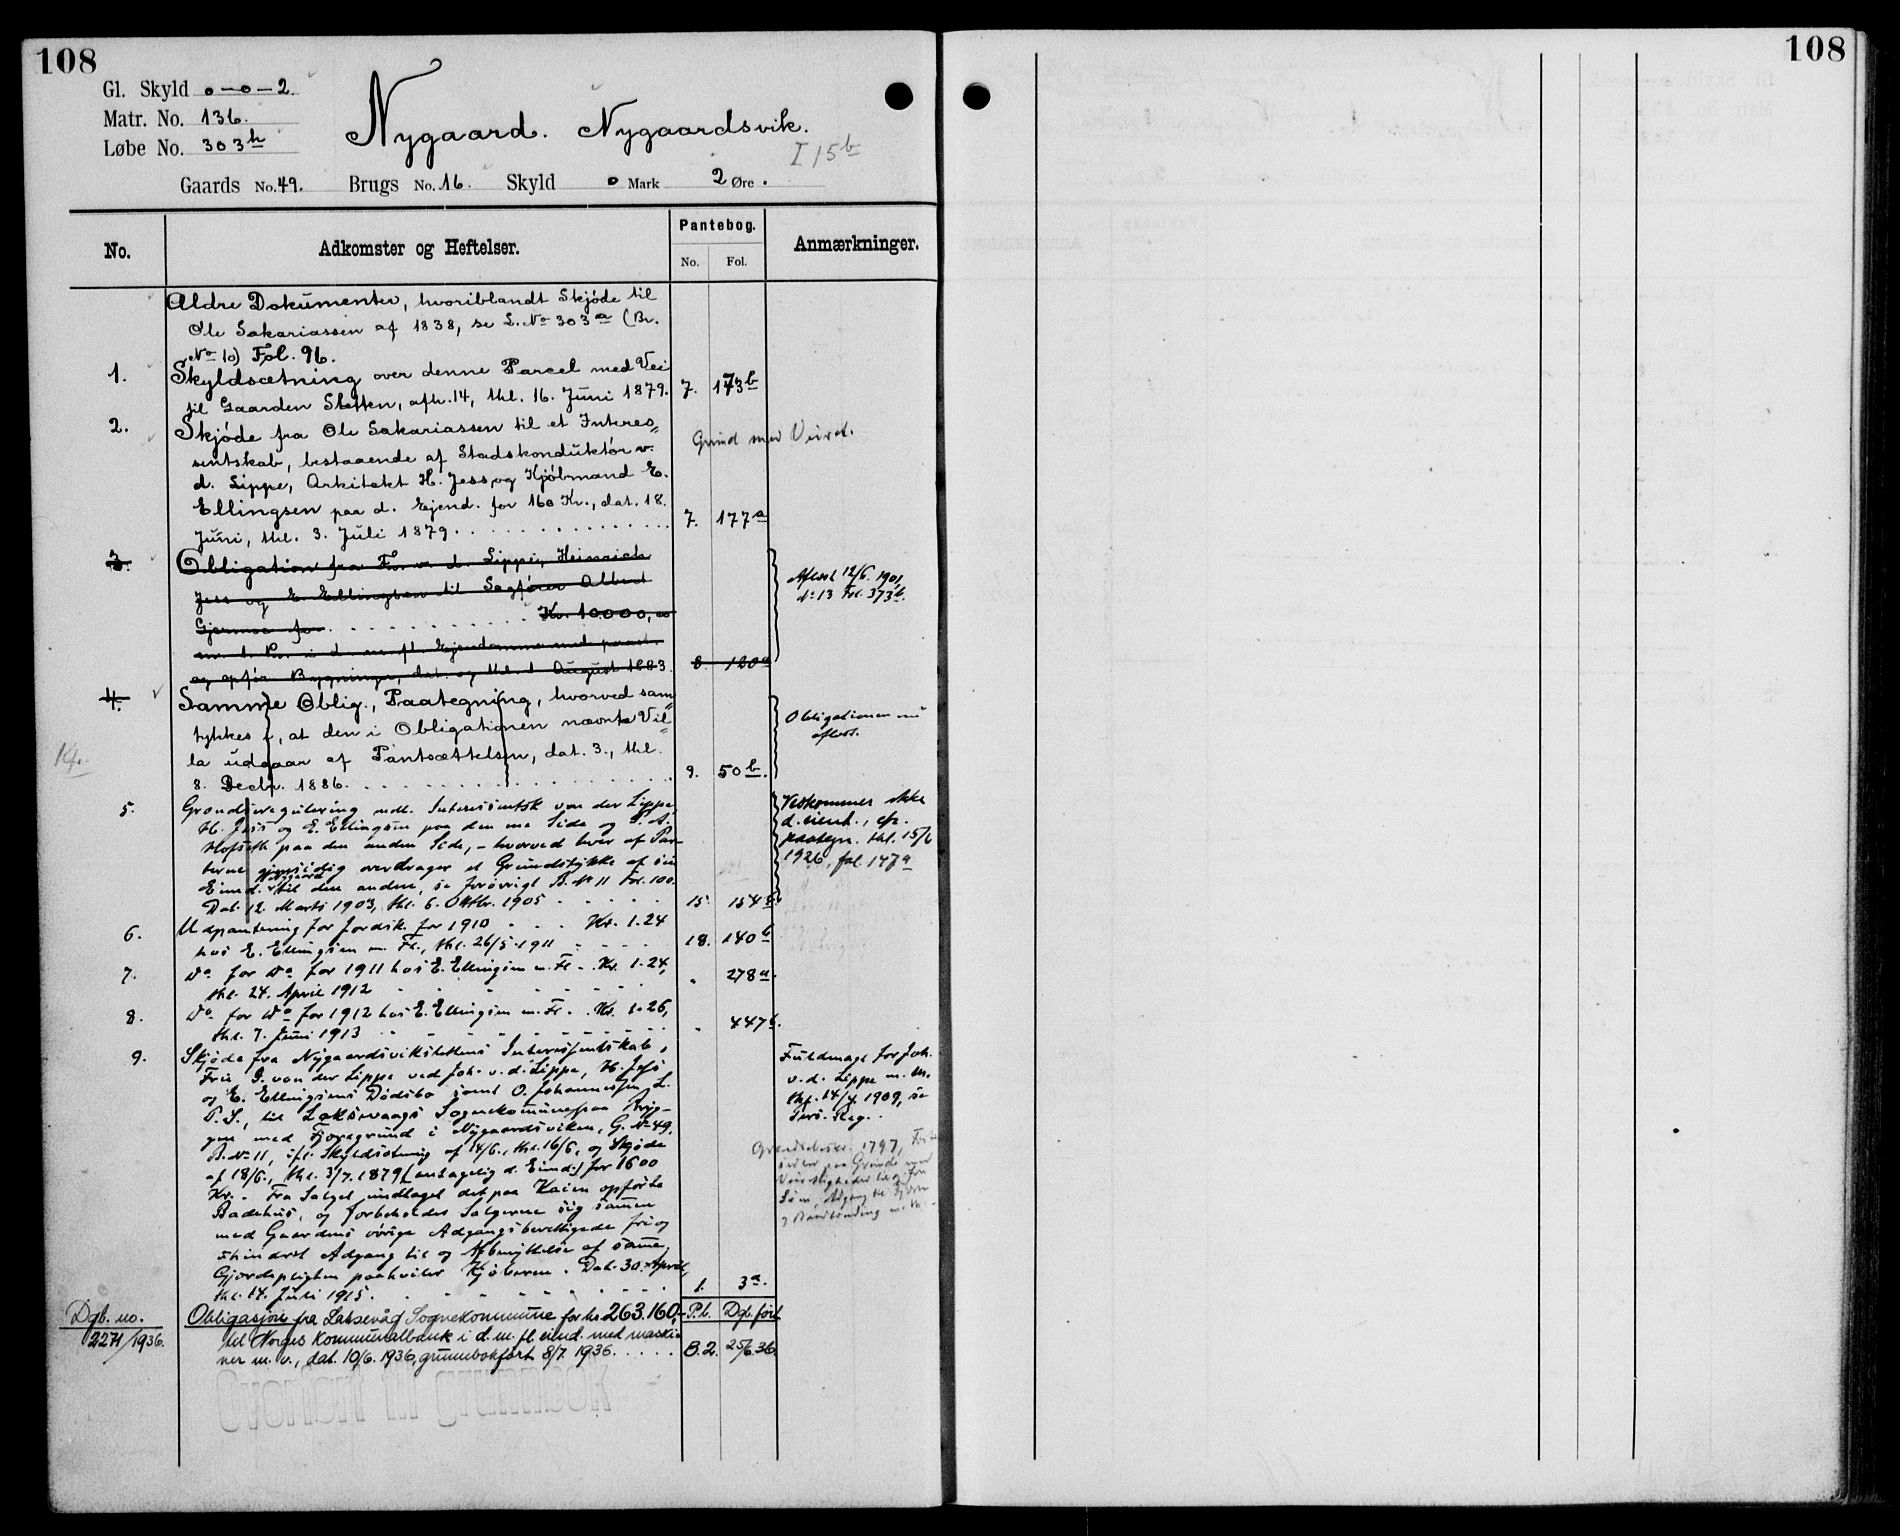 108
108
Gl. Skyld 0-0-2
Matr. No. 136.
Løbe No. 303h
Nygaard. Nygaardsvik.
I 15b
Gaards No. 49. Brugs No. 16. Skyld 0 Mark 2 Øre.
Pantebog.
No. Adkomster og Heftelser. No. Fol. Anmærkninger.
Ældre Dokumenter, hvoriblandt Skjøde til
Ole Sakariassen af 1838, se L. No 303a (Br.
No 10) Fol. 96.
1. Skyldsætning over denne Parcel med Vei
til Gaarden Sletten, afh. 14, thl. 16. Juni 1879. 7. 173b
2. Skjøde fra Ole Sakariassen til et Interes„
Grund med Veiret.
sentskab, bestaaende af Stadskonduktør v.
d. Lippe, Arkitekt H. Jess og Kjøbmand E.
Ellingsen paa d. Ejend. for 160 Kr., dat. 18.
Juni, thl. 3. Juli 1879. 7. 177a
3. Obligation fra Fr. v. d. Lippe, Heinrich
Jess og E. Ellingsen til Sagfører Albert
Gjermoe for Kr. 10.000,00
m. 1. Pr. i d. m. fl. Ejendomme med paast.
og opfør. Bygninger, dat. og thl. 1 August 1883. 8. 120a
Aflæst 12/6. 1901,
No 13 Fol. 373b.
4. Samme Oblig., Paategning, hvorved sam„
tykkes i, at den i Obligationen nævnte Vil„
la udgaar af Pantsættelsen, dat. 3., thl.
8. Decbr. 1886. 9. 50b.
Obligationen nu
aflæst.
5. Grændseregulering mell. Interessentsk von der Lippe,
H. Jess og E. Ellingsen paa den ene Side og P. A.
Hofseth paa den anden Side, - hvorved hver af Par-
terne gjensidig overdrager et Grundstykke af sin
Eiend. Nygaard til den anden, se forøvrigt B. No 11 Fol. 100.
Dat. 12. Marts 1903, thl. 6. Oktbr. 1905 15. 154b.
Vedkommer ikke
d. eiend., cfr.
paategn. thl. 15/6
1926, fol. 147a
6. Udpantning for Jordsk. for 1910 Kr. 1.24
hos E. Ellingsen m. Fl., thl. 26/5-1911 18. 140b
7. Do for Do for 1911 hos E. Ellingsen m. Fl. Kr. 1.24,
thl. 24. April 1912 " 278a.
8. Do for Do for 1912 hos E. Ellingsen m. Fl. Kr. 1.26,
thl. 7. Juni 1913 " 447b.
9. Skjøde fra Nygaardsvikslettens Interessentskab,
Frue G. von der Lippe ved Joh. v. d. Lippe, H. Jess
og E. Ellingsens Dødsbo samt O. Johannessen L.
P. S., til Laksevaags Sognekommune paa Bryg-
gen med Fjæregrund i Nygaardsviken, G. No 49,
B. No 11, ifl. Skyldsætning af 14/6., thl. 16/6, og Skjøde
af 18/6., thl. 3/7. 1879 (antagelig d. Eiend.) for 1600
Kr. - Fra Salget undtaget det paa Kaien opførte
Badehus, og forbeholdes Sælgerne sig sammen
med Gaardens øvrige Adgangsberettigede fri og
uhindret Adgang til og Afbenyttelse af samme.
Gjerdepligten paahviler Kjøberen. Dat. 30. April,
thl. 14. Juli 1915. 1. 3a.
Fuldmagt for Joh.
v. d. Lippe m. m.
thl. 14/4. 1909, se
Pers. Reg.
Kf.
Dgb. no.
2271/1936.
Obligasjon fra Laksevåg Sognekommune for kr. 263.160,- P.b. Dgb. ført
til Norges Kommunalbank i d. m. fl. eiend. med maski-
ner m. v., dat. 10/6. 1936, grunnbokført 8/7. 1936. B. 2. 25/6.36.
Overført til grunnbok